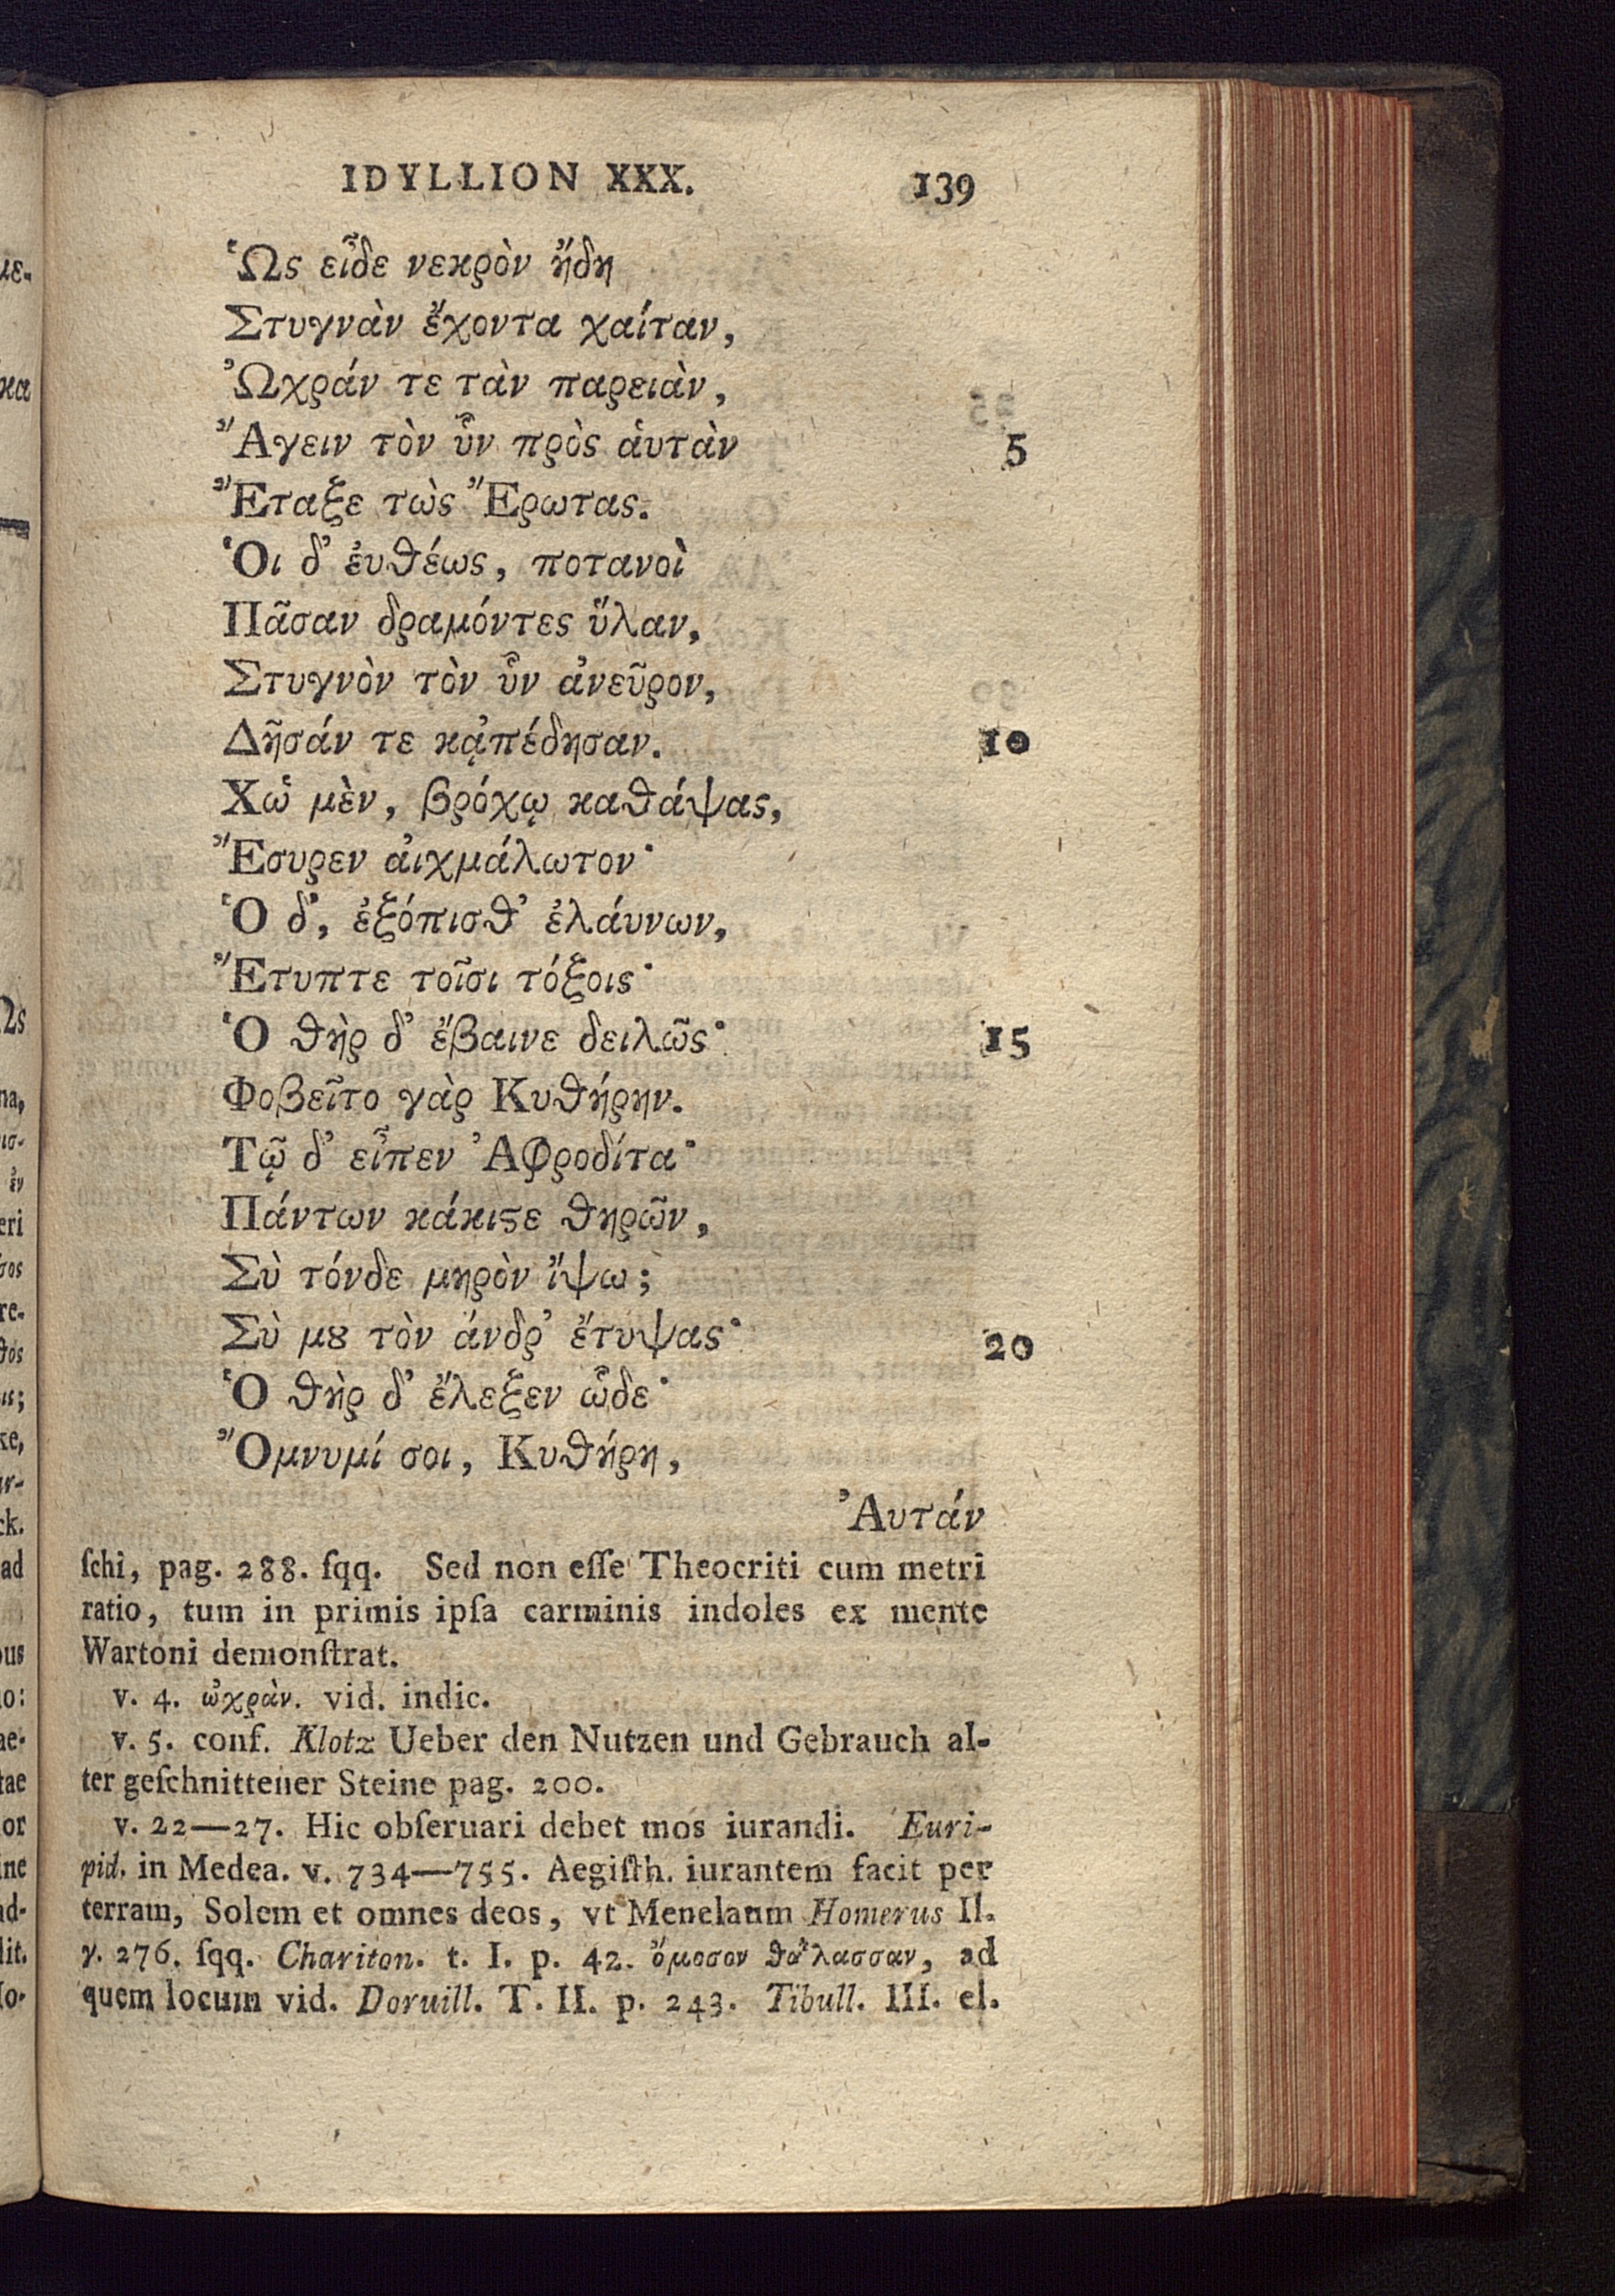 IDYLLION XXX. 139
Ὡς εἶδε νεκρὸν ἤδη
Στυγνὰν ἔχοντα χαίταν,
Ὠχράν τε τὰν παρειὰν,
Ἄγειν τὸν ὗν πρὸς ἁυτὰν 5
Ἔταξε τὼς Ἔρωτας.
Ὁι δ' ἐυθέως, ποτανοὶ
Πᾶσαν δραμόντες ὕλαν,
Στυγνὸν τὸν ὗν ἀνεῦρον,
Δῆσάν τε κᾀπέδησαν. 10
Χὠ μὲν, βρόχῳ καθάψας,
Ἔσυρεν ἀιχμάλωτον·
Ὁ δ', ἐξόπισθ' ἐλάυνων,
Ἔτυπτε τοῖσι τόξοις·
Ὁ θὴρ δ' ἔβαινε δειλῶς· 15
Φοβεῖτο γὰρ Κυθήρην.
Τῷ δ' εἶπεν Ἀφροδίτα·
Πάντων κάκιϛε θηρῶν,
Σὺ τόνδε μηρὸν ἴψω;
Σὺ μȣ τὸν ἄνδρ' ἔτυψας· 20
Ὁ θὴρ δ' ἔλεξεν ὧδε·
Ὄμνυμί σοι, Κυθήρη,
Ἀυτάν
ſchi, pag. 288. ſqq. Sed non eſſe Theocriti cum metri
ratio, tum in primis ipſa carminis indoles ex mente
Wartoni demonſtrat.
v. 4. ὠχρὰν. vid. indic.
v. 5. conf. Klotz Ueber den Nutzen und Gebrauch al-
ter geſchnittener Steine pag. 200.
v. 22—27. Hic obſeruari debet mos iurandi. Euri-
pid. in Medea. v. 734—755. Aegiſth. iurantem facit per
terram, Solem et omnes deos, vt Menelaum Homerus Il.
γ. 276. ſqq. Chariton. t. I. p. 42. ὄμοσον θάλασσαν, ad
quem locum vid. Doruill. T. II. p. 243. Tibull. III. el.